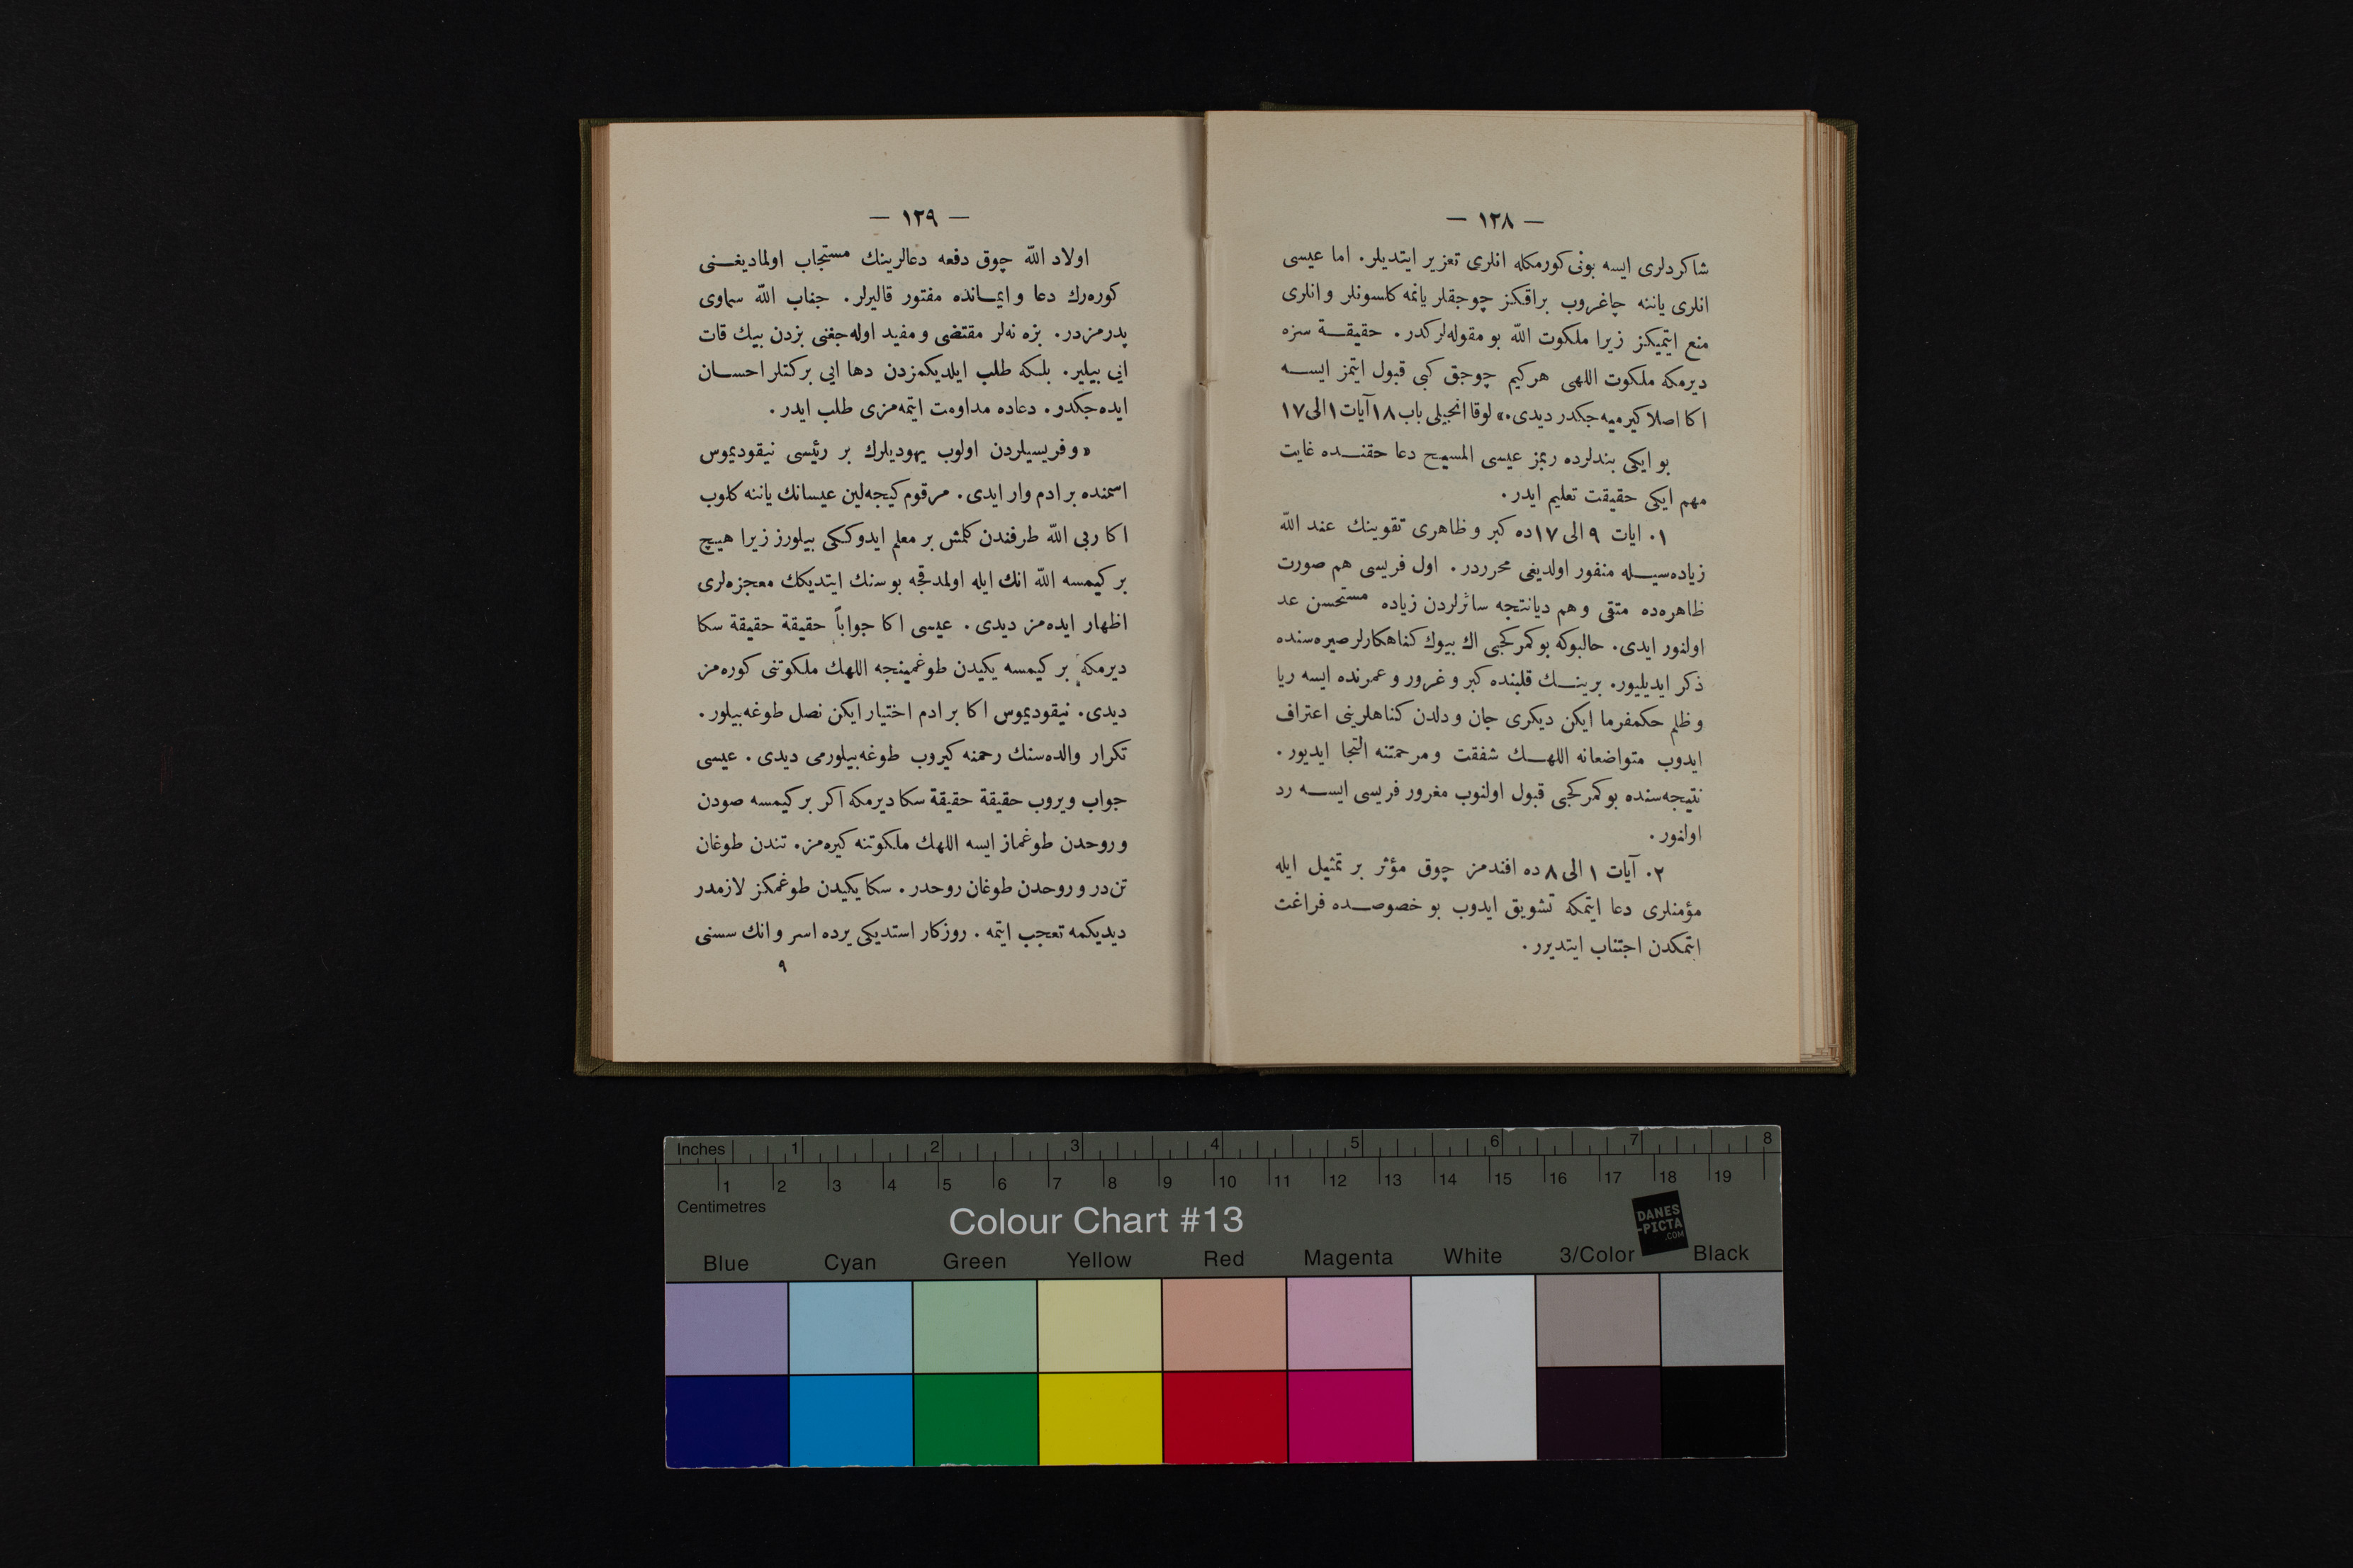 — ١٢٨ —
شاكردلری ایسه بونی كورمكله انلری تعزیر ایتدیلر. اما عیسی
انلری یاننه چاغروب براقكز چوجقلر یانمه كلسونلر و انلری
منع ایتمیكز زیرا ملكوت اللّه بو مقوله‌لركدر. حقیقة سزه
دیرمكه ملكوت اللهی هركیم چوجق كبی قبول ایتمز ایسه
اكا اصلا كیرمیه‌جكدر دیدی.» لوقا انجیلی باب ١٨ آیات ١ الی ١٧
بو ایكی بندلرده ربمز عیسی المسیح دعا حقنده غایت
مهم ایكی حقیقت تعلیم ایدر.
١. ایات ٩ الی ١٧ ده كبر و ظاهری تقوینك عند اللّه
زیاده‌سیله منفور اولدیغی محرردر. اول فریسی هم صورت
ظاهره‌ده متقی و هم دیانتجه سائرلردن زیاده مستحسن عد
اولنور ایدی. حالبوكه بو كمركجی اك بیوك كناهكارلر صیره‌سنده
ذكر ایدیلیور. برینك قلبنده كبر و غرور و عمرنده ایسه ریا
و ظلم حكمفرما ایكن دیكری جان و دلدن كناهلرینی اعتراف
ایدوب متواضعانه اللهك شفقت و مرحمتنه التجا ایدیور.
نتیجه‌سنده بو كمركجی قبول اولنوب مغرور فریسی ایسه رد
اولنور.
٢. آیات ١ الی ٨ ده افندمز چوق مؤثر بر تمثیل ایله
مؤمنلری دعا ایتمكه تشویق ایدوب بو خصوصده فراغت
اتمكدن اجتناب ایتدیرر.
— ١٢٩ —
اولاد اللّه چوق دفعه دعالرینك مستجاب اولمادیغنی
كوره‌رك دعا و ایمانده مفتور قالیرلر. جناب اللّه سماوی
پدرمزدر. بزه نه‌لر مقتضی و مفید اوله‌جغنی بزدن بیك قات
ایی بیلیر. بلكه طلب ایلدیكمزدن دها ایی بركتلر احسان
ایده‌جكدو. دعاده مداومت ایتمه‌مزی طلب ایدر.
« و فریسیلردن اولوب یهودیلرك بر رئیسی نیقودیموس
اسمنده بر ادم وار ایدی. مرقوم كیجه‌لین عیسانك یاننه كلوب
اكا ربی اللّه طرفندن كلمش بر معلم ایدوككی بیلورز زیرا هیچ
بر كیمسه اللّه انك ایله اولمدقجه بو سنك ایتدیكك معجزه‌لری
اظهار ایده‌مز دیدی. عیسی اكا جواباً حقیقة حقیقة سكا
دیرمكه بر كیمسه یكیدن طوغمینجه اللهك ملكوتنی كوره‌مز
دیدی. نیقودیموس اكا بر ادم اختیار ایكن نصل طوغه‌بیلور.
تكرار والده‌سنك رحمنه كیروب طوغه‌بیلورمی دیدی. عیسی
جواب ویروب حقیقة حقیقة سكا دیرمكه اكر بر كیمسه صودن
و روحدن طوغماز ایسه اللهك ملكوتنه كیره‌مز. تندن طوغان
تن‌در و روحدن طوغان روحدر. سكا یكیدن طوغمكز لازمدر
دیدیكمه تعجب ایتمه. روزكار استدیكی یرده اسر و انك سسنی
٩
Inches 1 2 3 4 5 6 7 8
1 2 3 4 5 6 7 8 9 10 11 12 13 14 15 16 17 18 19
Centimetres
Colour Chart #13
DANES
-PICTA
.COM
Blue Cyan Green Yellow Red Magenta White 3/Color Black